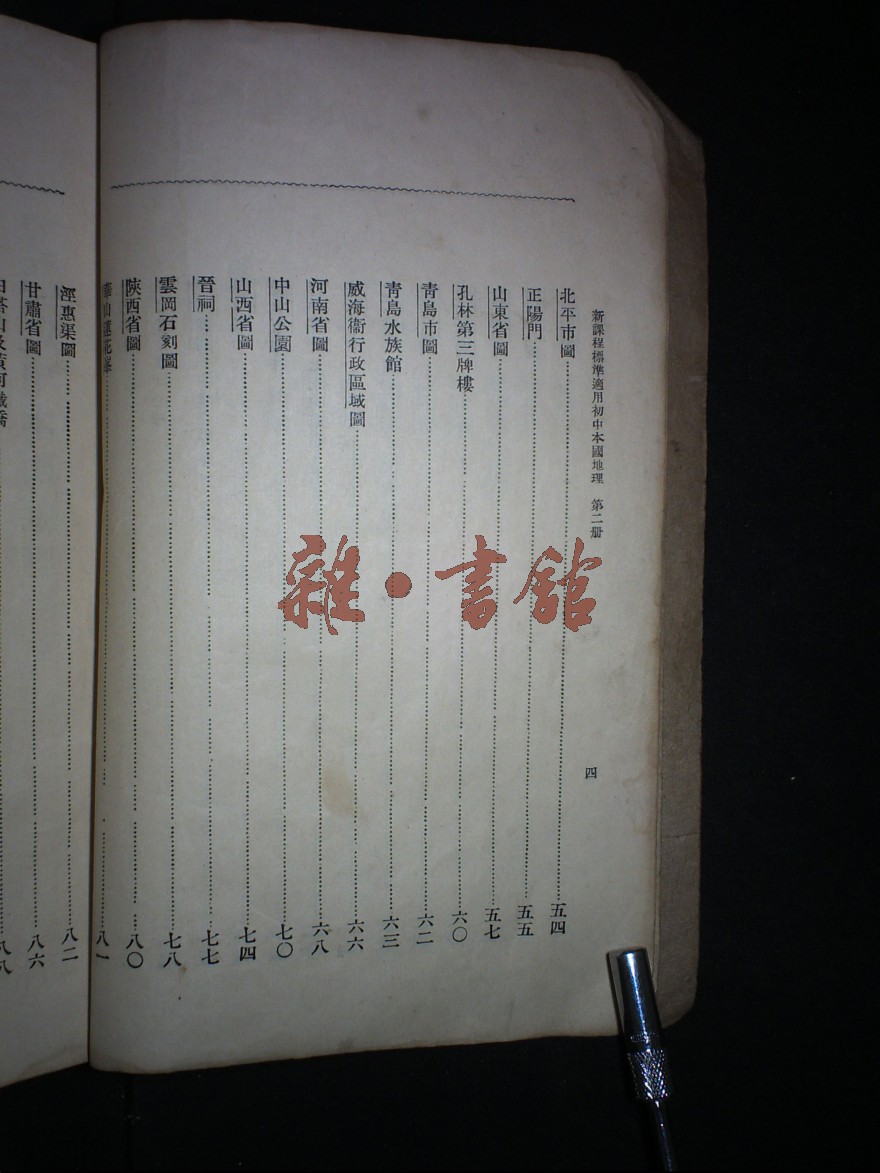 新課程標準適用初中本國地理　第二册
四
北平市圖……五四
正陽門……五五
山東省圖……五七
孔林第三牌樓……六〇
青島市圖……六二
青島水族館……六三
威海衞行政區域圖……六六
河南省圖……六八
中山公園……七〇
山西省圖……七四
晉祠……七七
雲岡石刻圖……七八
陝西省圖……八〇
華山蓮花峯……八一
涇惠渠圖……八二
甘肅省圖……八六
白塔山及黃河鐵橋……八八
雜·書館